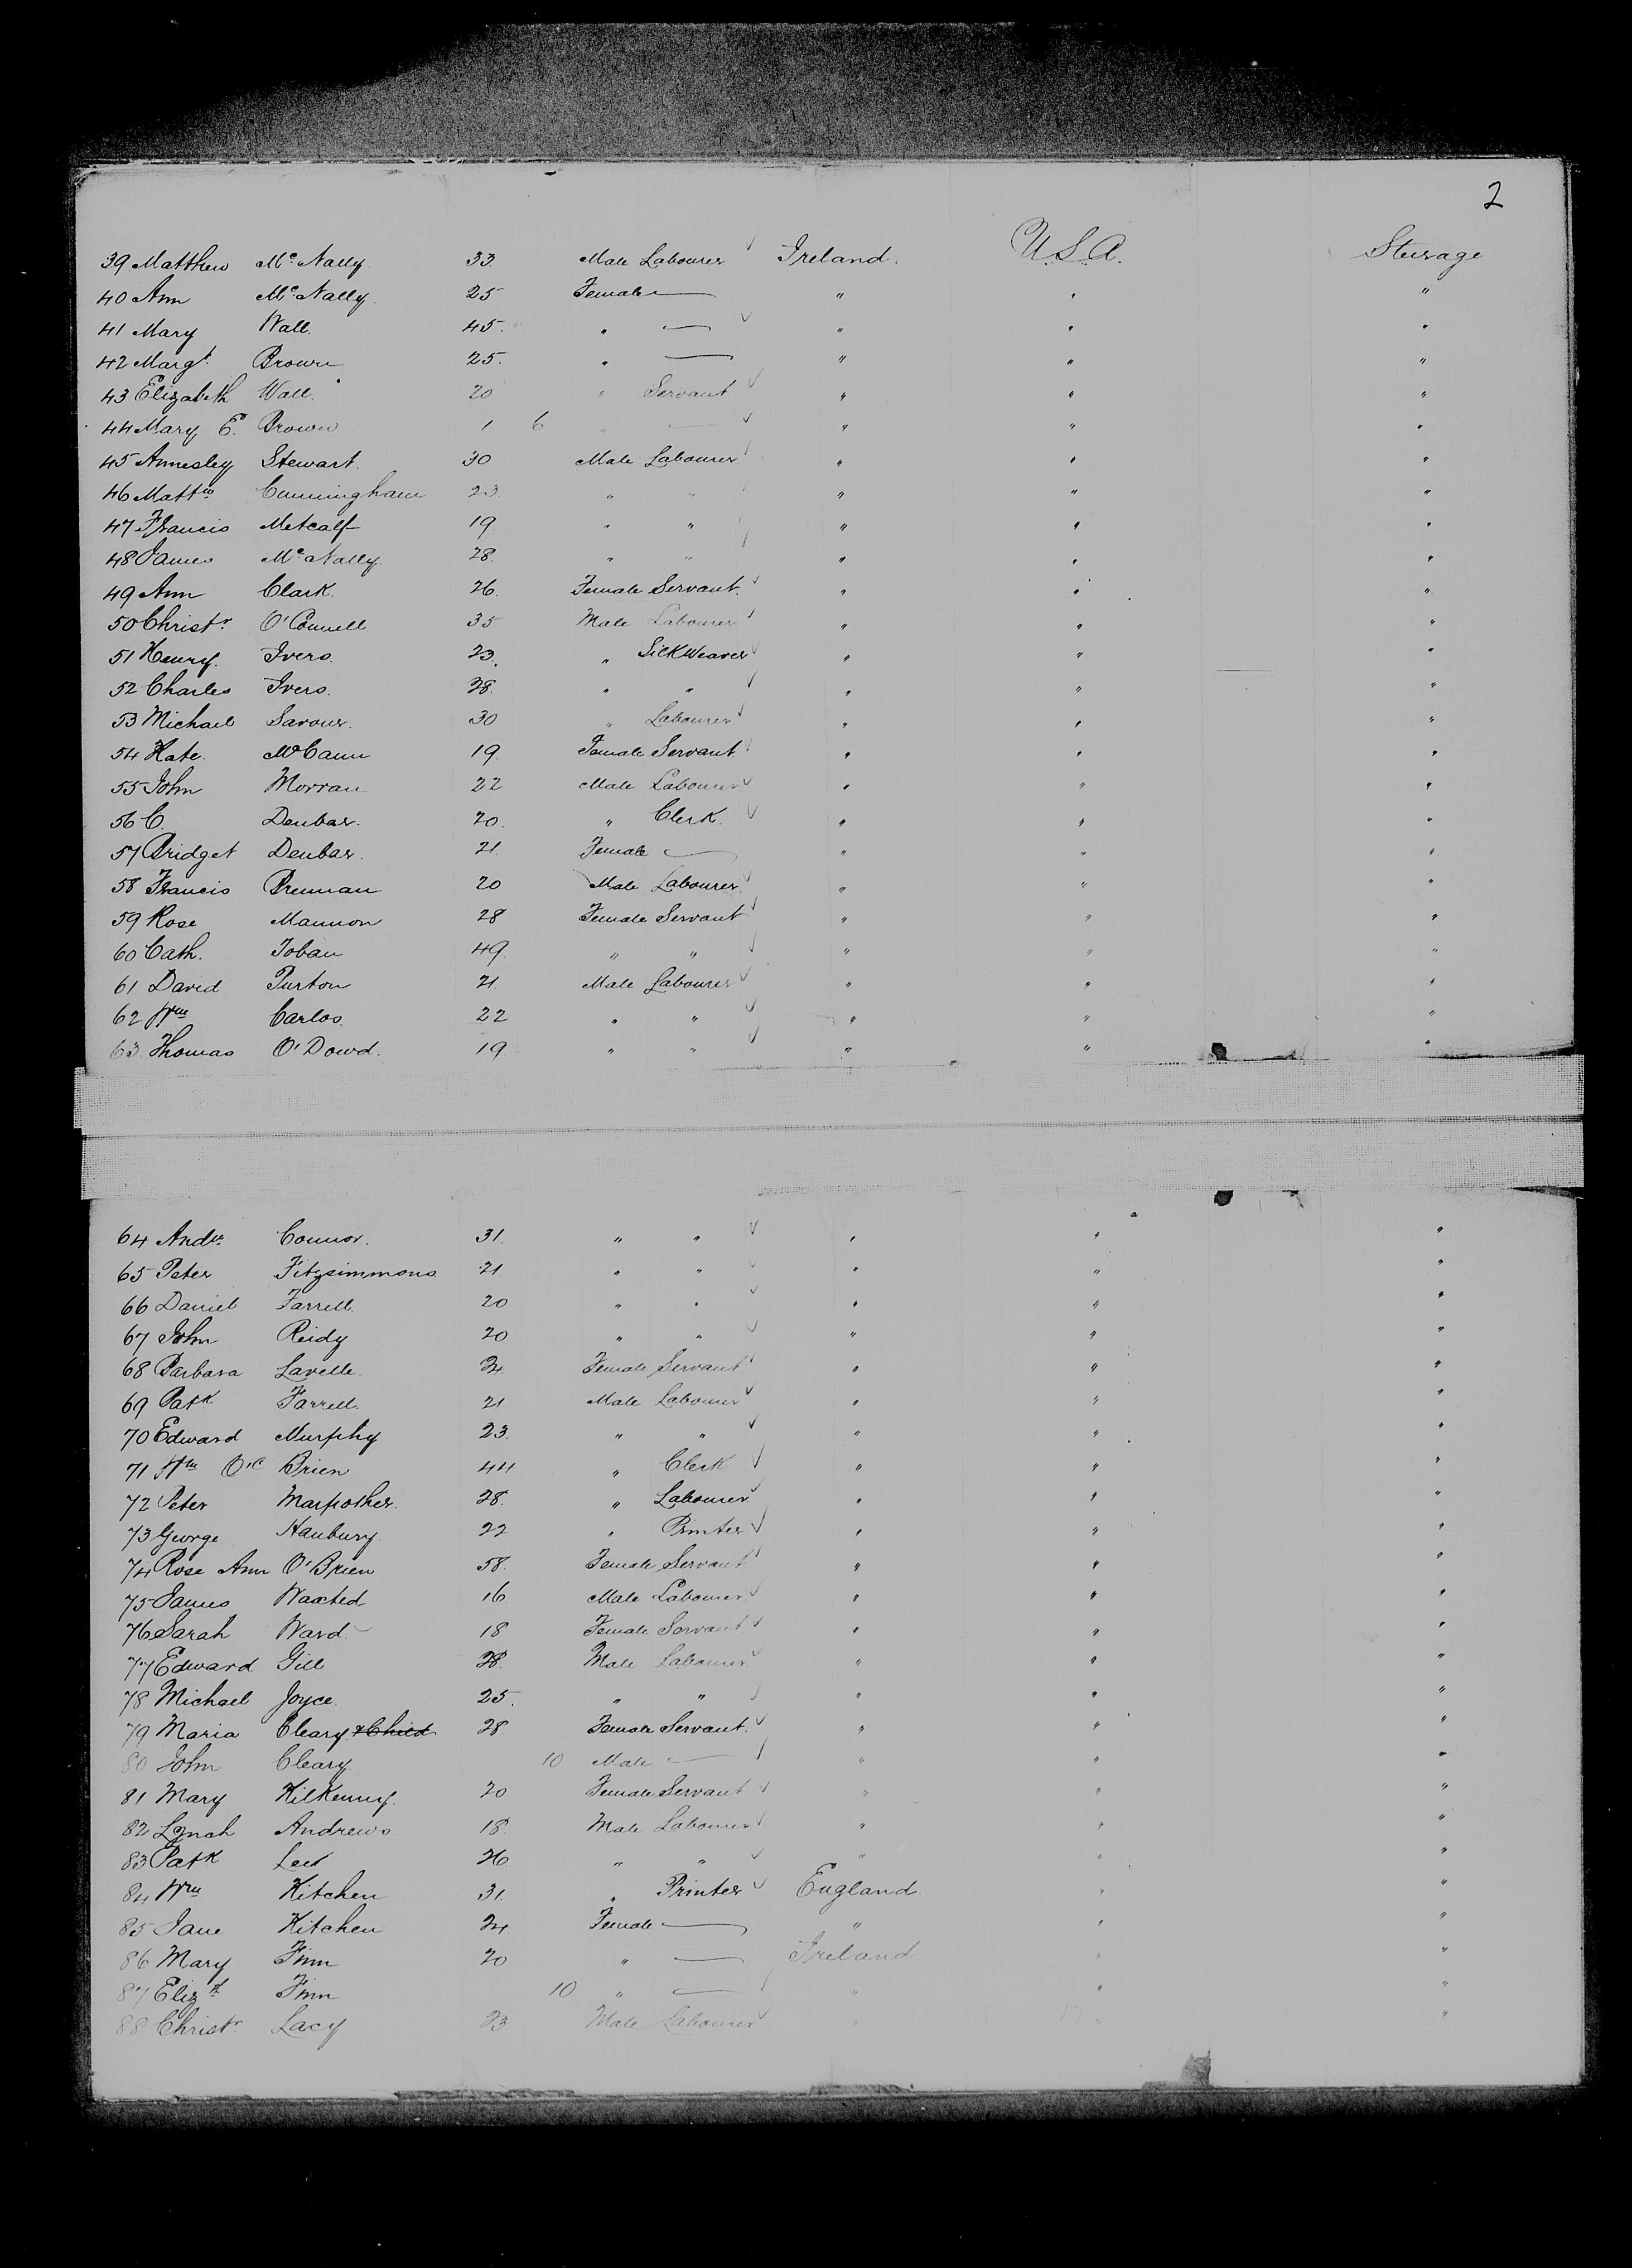 2
39 Matthew McNally 33 Male Labourer Ireland. U.S.A. Steerage
40 Ann McNally 25 Female — " " "
41 Mary Wall 45 " — " " "
42 Margt Brown 25 " — " " "
43 Elizabeth Wall 20 " Servant " " "
44 Mary E. Brown 1 6 " — " " "
45 Annesley Stewart 30 Male Labourer " " "
46 Mattw Cunningham 23 " " " " "
47 Francis Metcalf 19 " " " " "
48 James McNally 28 " " " " "
49 Ann Clark 26 Female Servant " " "
50 Christr O'Connell 35 Male Labourer " " "
51 Henry Ivers 23 " Silk Weaver " " "
52 Charles Ivers 28 " " " " "
53 Michael Savour 30 " Labourer " " "
54 Kate McCann 19 Female Servant " " "
55 John Morran 22 Male Labourer " " "
56 C. Denbar 20 " Clerk " " "
57 Bridget Denbar 21 Female — " " "
58 Francis Brennan 20 Male Labourer " " "
59 Rose Mannon 28 Female Servant " " "
60 Cath. Toban 49 " " " " "
61 David Purton 21 Male Labourer " " "
62 Wm Carlos 22 " " " " "
63 Thomas O'Dowd 19 " " " " "
64 Andw Connor 31 " " " " "
65 Peter Fitzsimmons 21 " " " " "
66 Daniel Farrell 20 " " " " "
67 John Reidy 20 " " " " "
68 Barbara Lavelle 24 Female Servant " " "
69 Patk Farrell 21 Male Labourer " " "
70 Edward Murphy 23 " " " " "
71 Wm O'C Brien 44 " Clerk " " "
72 Peter Marpother 28 " Labourer " " "
73 George Hanbury 22 " Printer " " "
74 Rose Ann O'Brien 58 Female Servant " " "
75 James Waxted 16 Male Labourer " " "
76 Sarah Ward 18 Female Servant " " "
77 Edward Gill 28 Male Labourer " " "
78 Michael Joyce 25 " " " " "
79 Maria Cleary & Child 28 Female Servant " " "
80 John Cleary 10 Male — " " "
81 Mary Kilkenny 20 Female Servant " " "
82 Lynch Andrews 18 Male Labourer " " "
83 Patk 26 " " " " "
84 Wm Kitchen 31 " Printer England " "
85 Jane Kitchen 24 Female — " " "
86 Mary Finn 20 " — Ireland " "
87 Elizth Finn 10 " — " " "
88 Christr Lacy 23 Male Labourer " " "